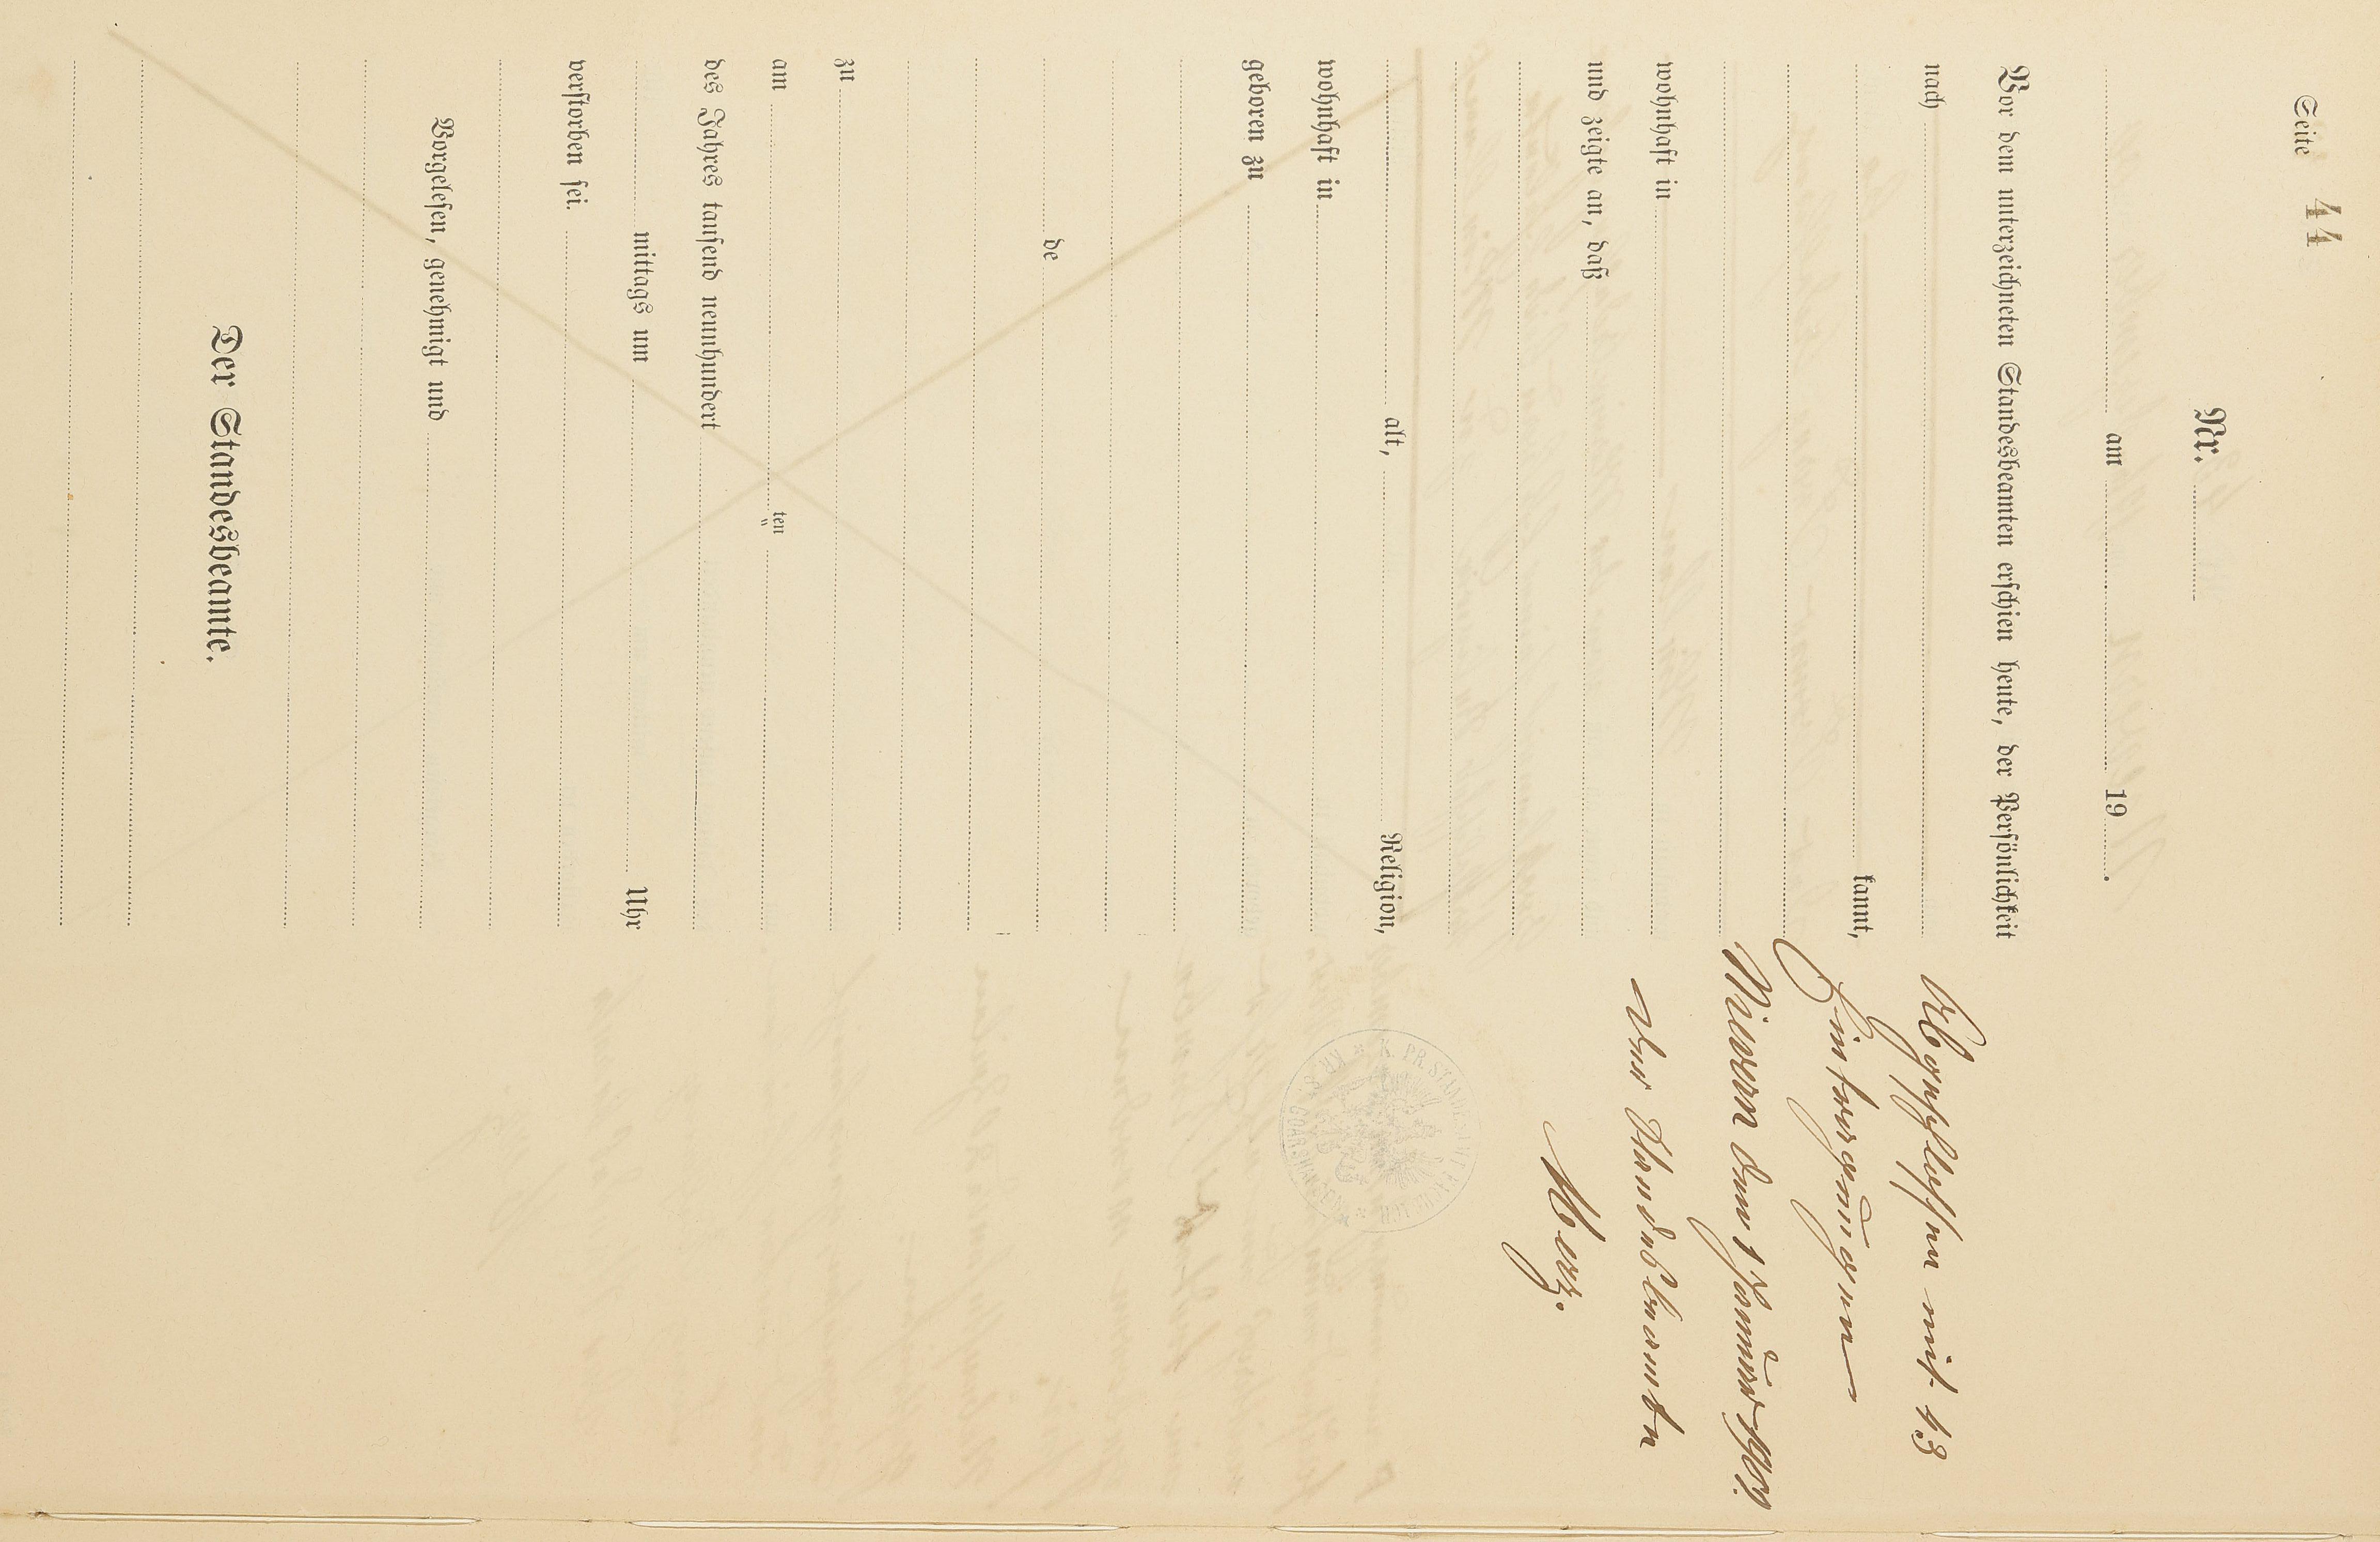 Seite 44
Nr.
am 19 .
Vor dem unterzeichneten Standesbeamten erschien heute, der Persönlichkeit
nach
kannt,
wohnhaft in
und zeigte an, daß
alt, Religion,
wohnhaft in
geboren zu
de
zu
am ten
des Jahres tausend neunhundert
mittags um Uhr
verstorben sei.
Vorgelesen, genehmigt und
Der Standesbeamte.
Abgeschlossen mit 43
Eintragungen
den 1 Januar
Der Standesbeamte